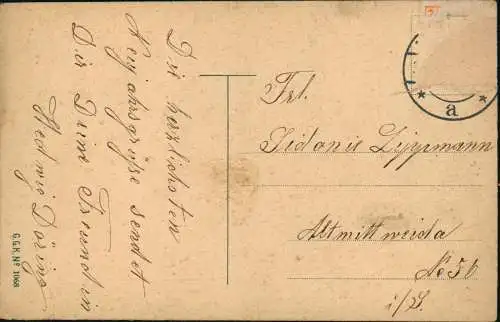 Die herzlichsten
Neujahrsgrüße sendet
Dir Deine Freundin
Hedwig Döring
Frl.
Sidonie Lippmann
Altmittweida
No 56
i/S.
a
G.G.K. No 1068